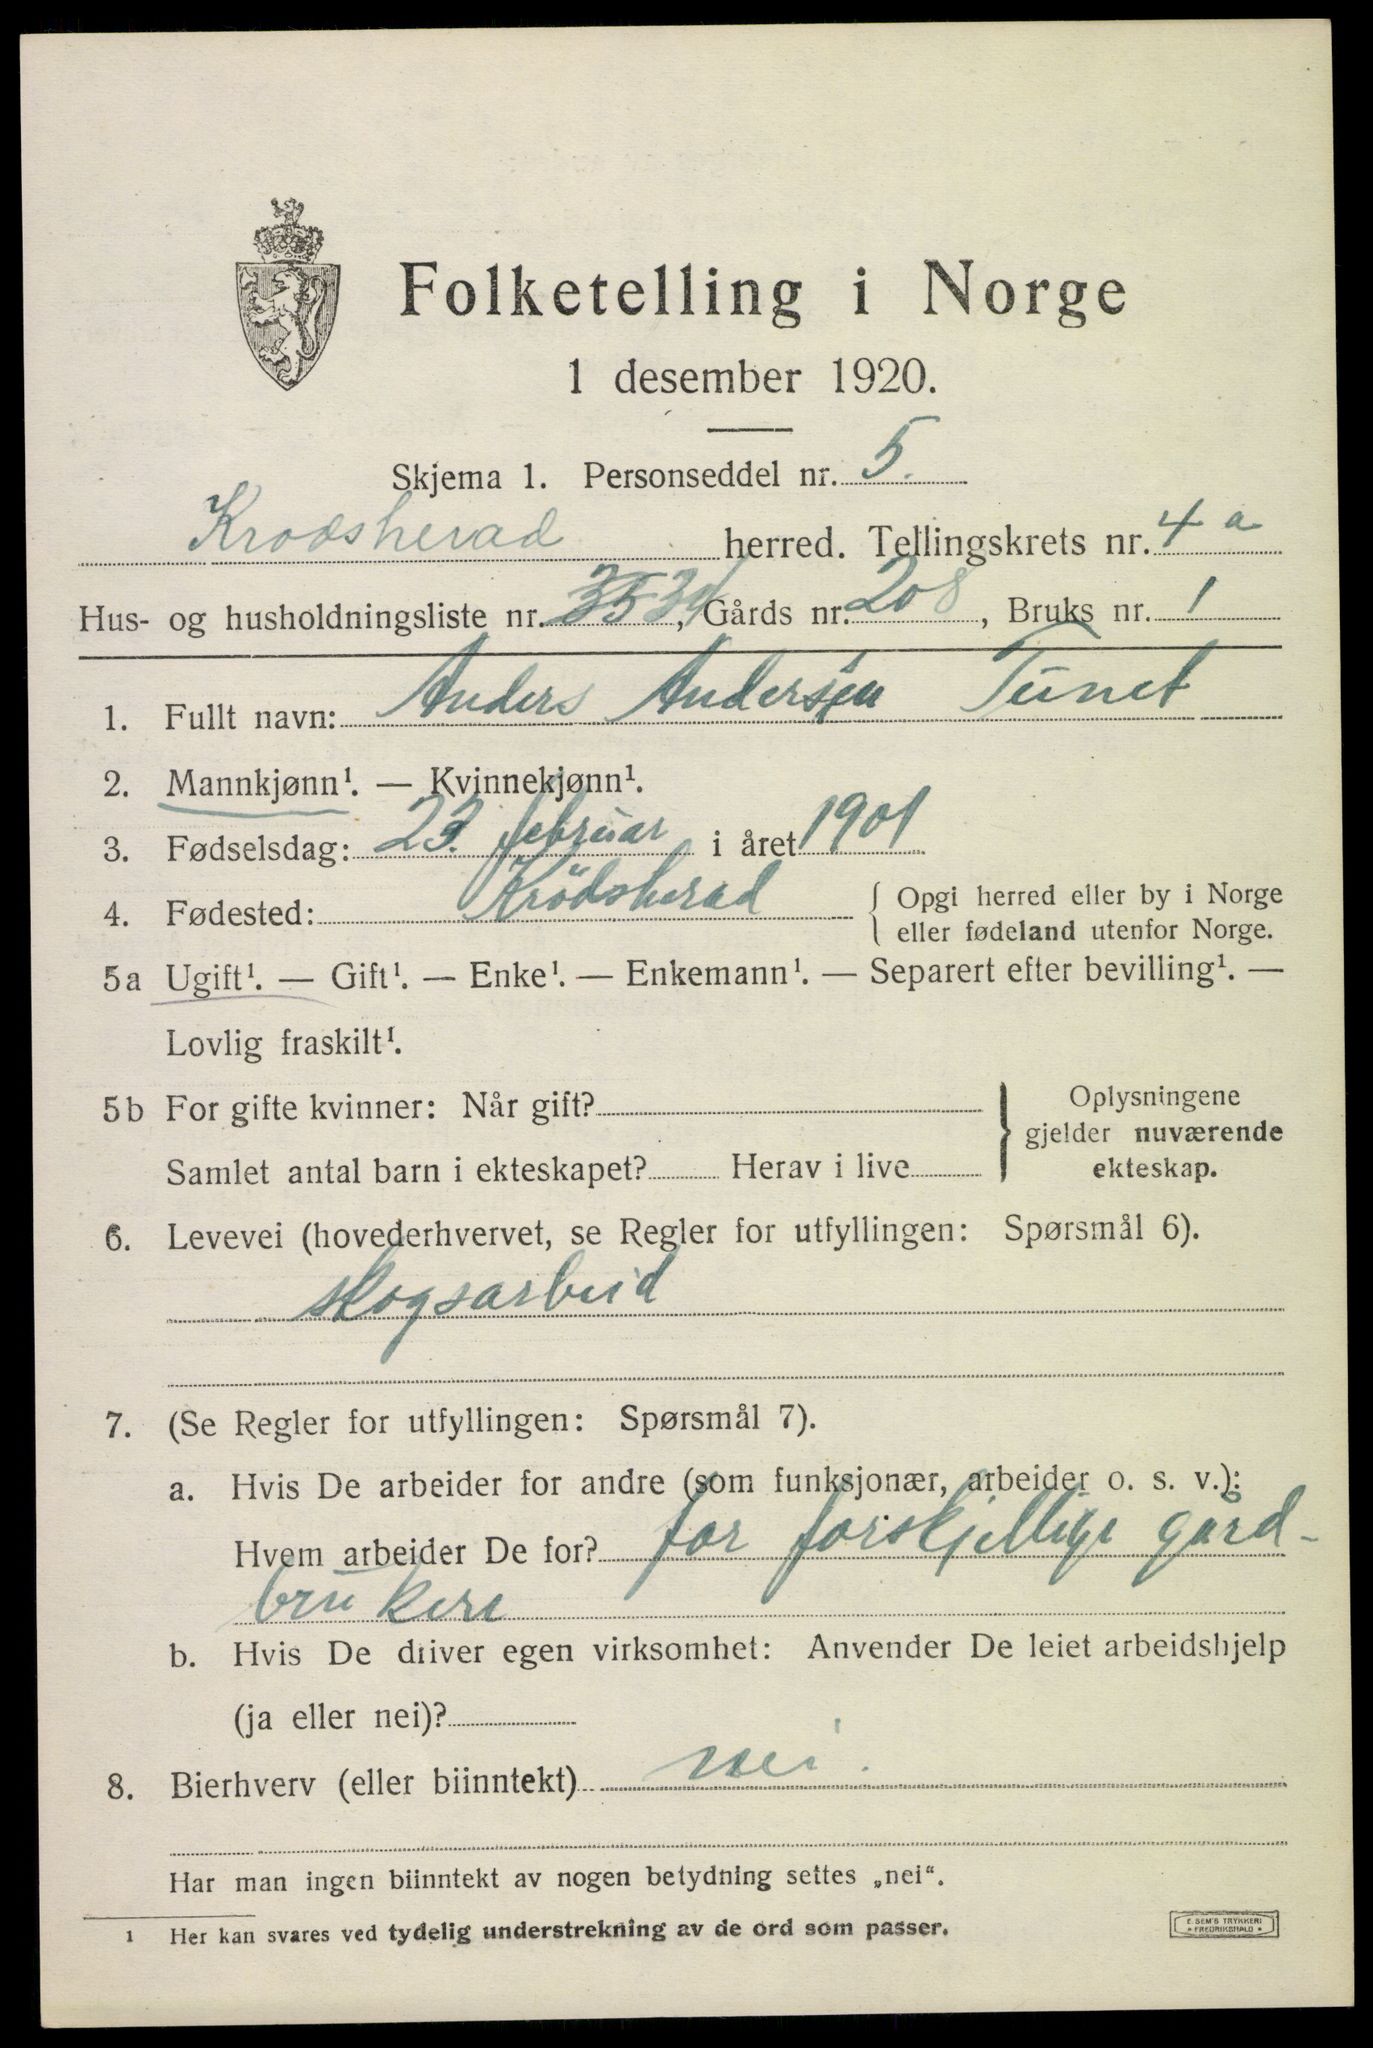 Folketelling i Norge
1 desember 1920.
Skjema 1. Personseddel nr. 5.
Krødsherad herred. Tellingskrets nr. 4 a
Hus- og husholdningsliste nr. , Gårds nr. 208, Bruks nr. 1
1. Fullt navn: Anders Andersen Tunet
2. Mannkjønn¹. — Kvinnekjønn¹.
3. Fødselsdag: 23. februar i året 1901
4. Fødested: Krødsherad { Opgi herred eller by i Norge
eller fødeland utenfor Norge.
5a Ugift¹. — Gift¹. — Enke¹. — Enkemann¹. — Separert efter bevilling¹. —
Lovlig fraskilt¹.
5b For gifte kvinner: Når gift? } Oplysningene
gjelder nuværende
Samlet antal barn i ekteskapet? Herav i live ekteskap.
6. Levevei (hovederhvervet, se Regler for utfyllingen: Spørsmål 6).
skogsarbeid
7. (Se Regler for utfyllingen: Spørsmål 7).
a. Hvis De arbeider for andre (som funksjonær, arbeider o. s. v.):
Hvem arbeider De for? for forskjellige gård-
brukere
b. Hvis De driver egen virksomhet: Anvender De leiet arbeidshjelp
(ja eller nei)?
8. Bierhverv (eller biinntekt) nei.
Har man ingen biinntekt av nogen betydning settes „nei“.
1 Her kan svares ved tydelig understrekning av de ord som passer.
E. SEM'S TRYKKERI
* FREDRIKSHALD *